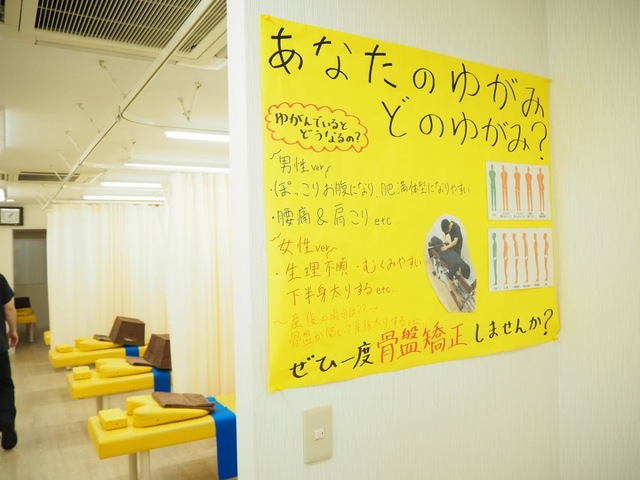 あなたのゆがみ
どのゆがみ?
ゆがんでいると
どうなるの?
〜男性ver〜
・ぽっこりお腹になり、肥満体型になりやすい
・腰痛&肩こり etc…
〜女性ver〜
・生理不順・むくみやすい
下半身太りする etc…
〜産後の場合は??〜
骨盤が開いて産後太りする
ぜひ一度骨盤矯正しませんか?